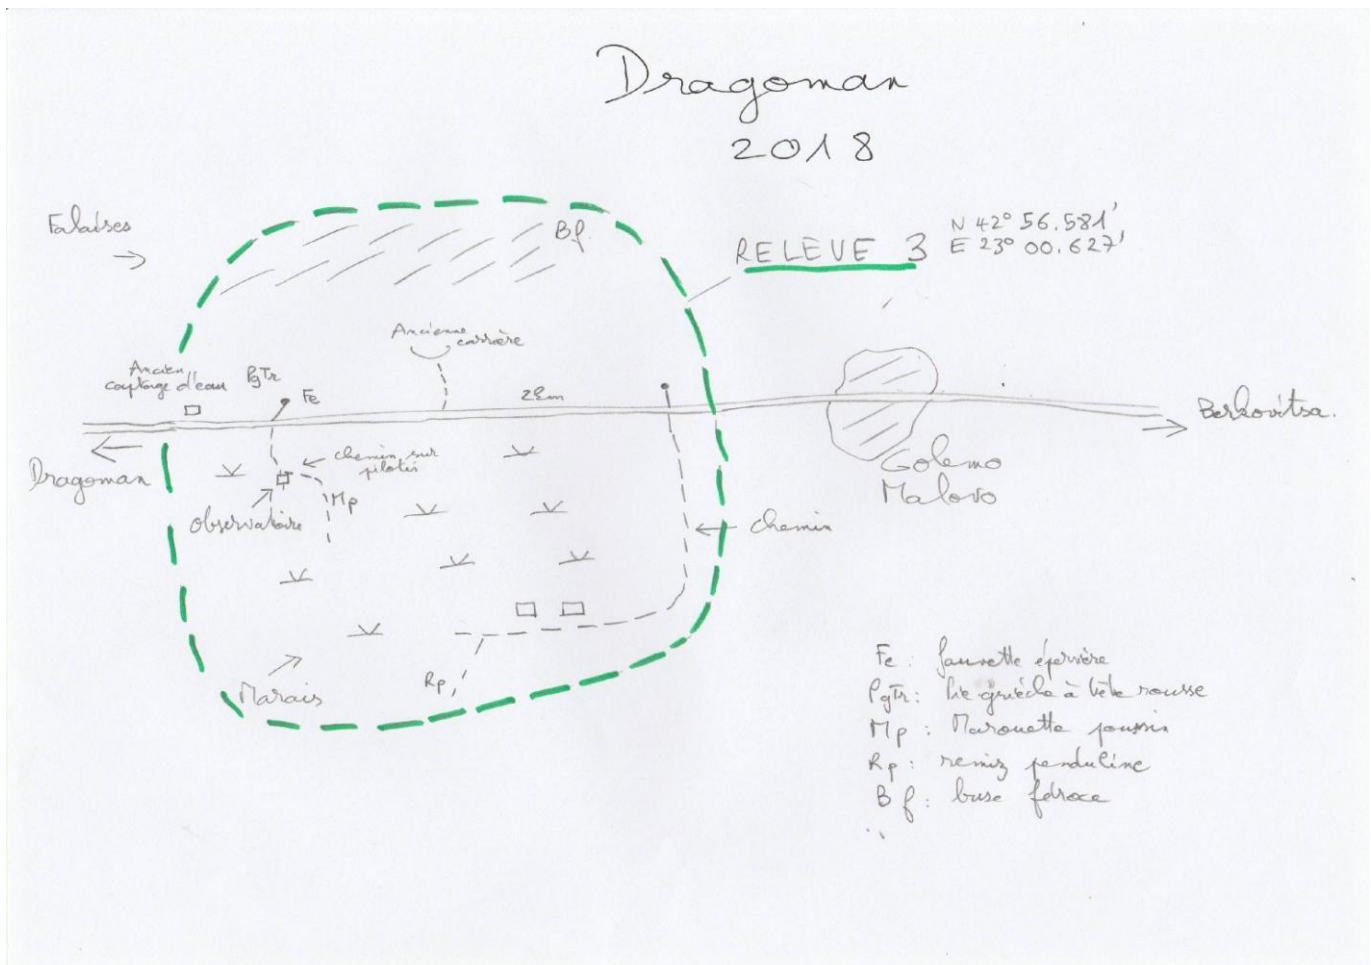 Dragoman
2018
Falaises
Bf.
RELEVE 3
N 42° 56.581'
E 23° 00.627'
Ancienne
carrière
Ancien
captage d'eau
PgTr
Fe
2km
Berkovitsa.
Dragoman
chemin sur
pilotis
Mp
Observatoire
Golemo
Malovo
chemin
Rp
Marais
Fe : fauvette épervière
PgTr : Pie grièche à tête rousse
Mp : Marouette poussin
Rp : remiz penduline
Bf : buse féroce